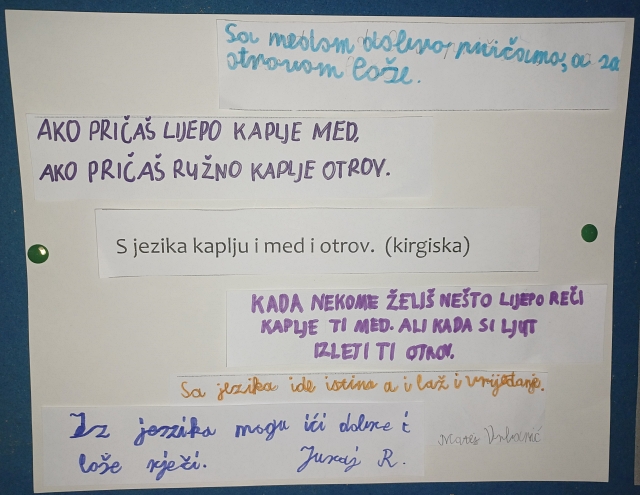 Sa medom dobro pričamo, a sa
otrovom loše.
AKO PRIČAŠ LIJEPO KAPLJE MED,
AKO PRIČAŠ RUŽNO KAPLJE OTROV.
S jezika kaplju i med i otrov. (kirgiska)
KADA NEKOME ŽELIŠ NEŠTO LIJEPO REČI
KAPLJE TI MED. ALI KADA SI LJUT
IZLETI TI OTROV.
Sa jezika ide istina a i laž i vrijeđanje.
Iz jezika mogu ići dobre i
loše rječi. Juraj R.